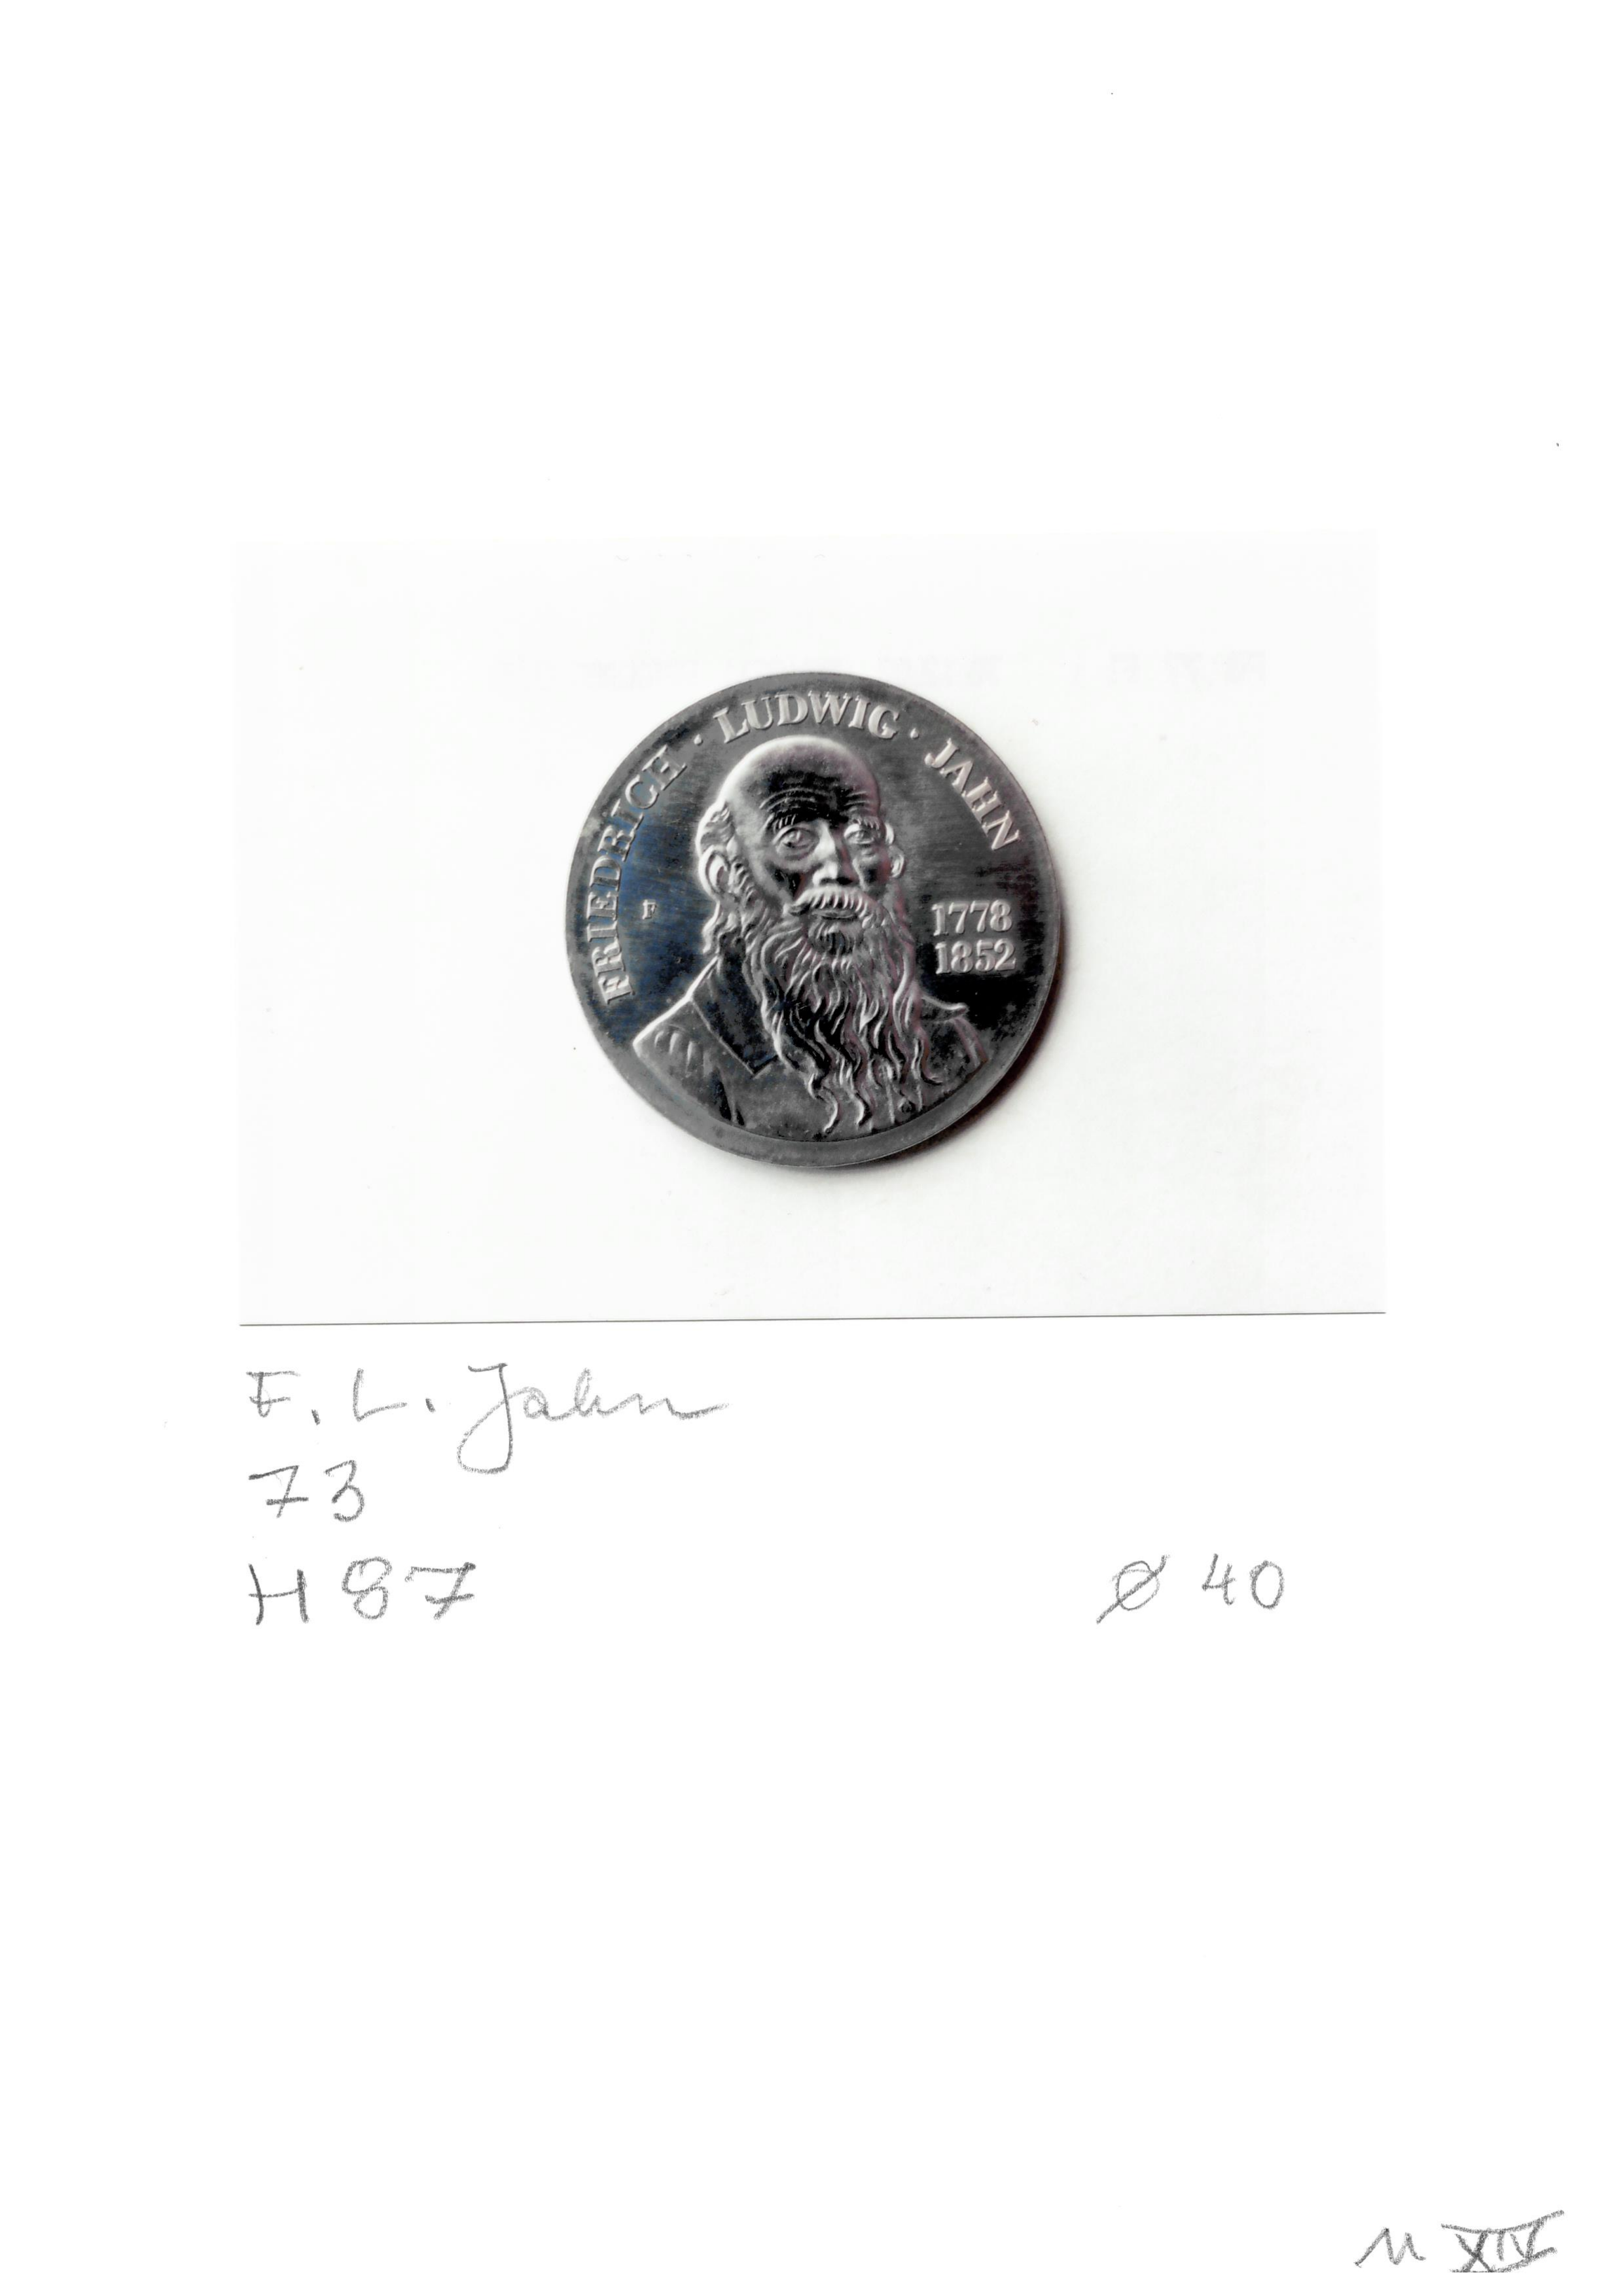 FRIEDRICH · LUDWIG · JAHN
F
1778
1852
F. L. Jahn
73
H 87
Ø 40
M XIV